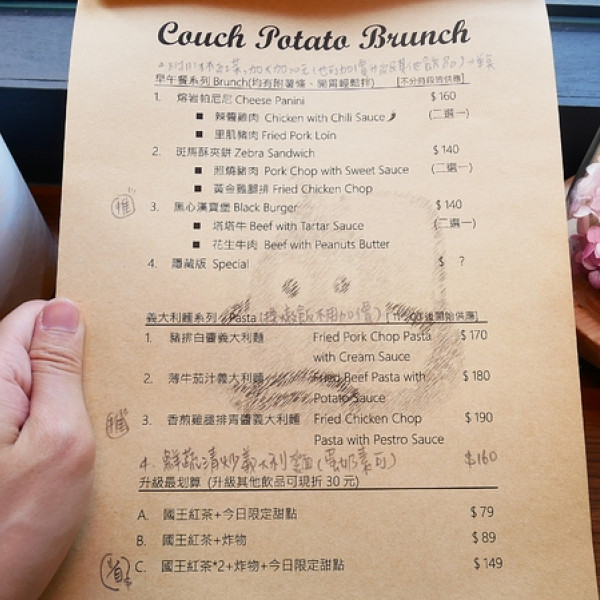 Couch Potato Brunch
早午餐系列 Brunch(均有附薯條、開胃輕鬆拌) [不分時段皆供應]
1. 熔岩帕尼尼 Cheese Panini $160
■ 辣醬雞肉 Chicken with Chili Sauce (二選一)
■ 里肌豬肉 Fried Pork Loin
2. 斑馬酥夾餅 Zebra Sandwich $140
■ 照燒豬肉 Pork Chop with Sweet Sauce (二選一)
■ 黃金雞腿排 Fried Chicken Chop
推 3. 黑心漢寶堡 Black Burger $140
■ 塔塔牛 Beef with Tartar Sauce (二選一)
■ 花生牛肉 Beef with Peanuts Butter
4. 隱藏版 Special $ ?
義大利麵系列 Pasta (換燉飯不用加價) 後開始供應]
1. 豬排白醬義大利麵 Fried Pork Chop Pasta $170
with Cream Sauce
2. 薄牛茄汁義大利麵 Fried Beef Pasta with $180
Potato Sauce
推 3. 香煎雞腿排青醬義大利麵 Fried Chicken Chop $190
Pasta with Pestro Sauce
4. 鮮蔬清炒義大利麵(蛋奶素可) $160
升級最划算 (升級其他飲品可現折 30 元)
A. 國王紅茶+今日限定甜點 $79
B. 國王紅茶+炸物 $89
C. 國王紅茶*2+炸物+今日限定甜點 $149